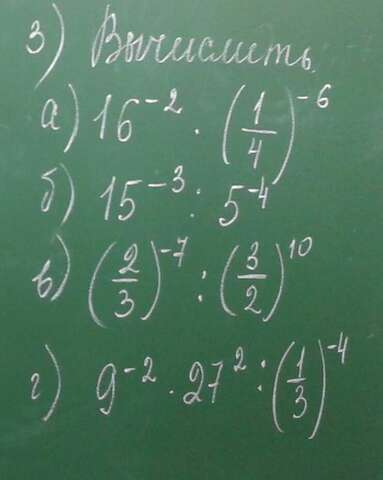 3) Вычислить
а) 16⁻² · (1/4)⁻⁶
б) 15⁻³ : 5⁻⁴
в) (2/3)⁻⁷ : (3/2)¹⁰
г) 9⁻² · 27² : (1/3)⁻⁴